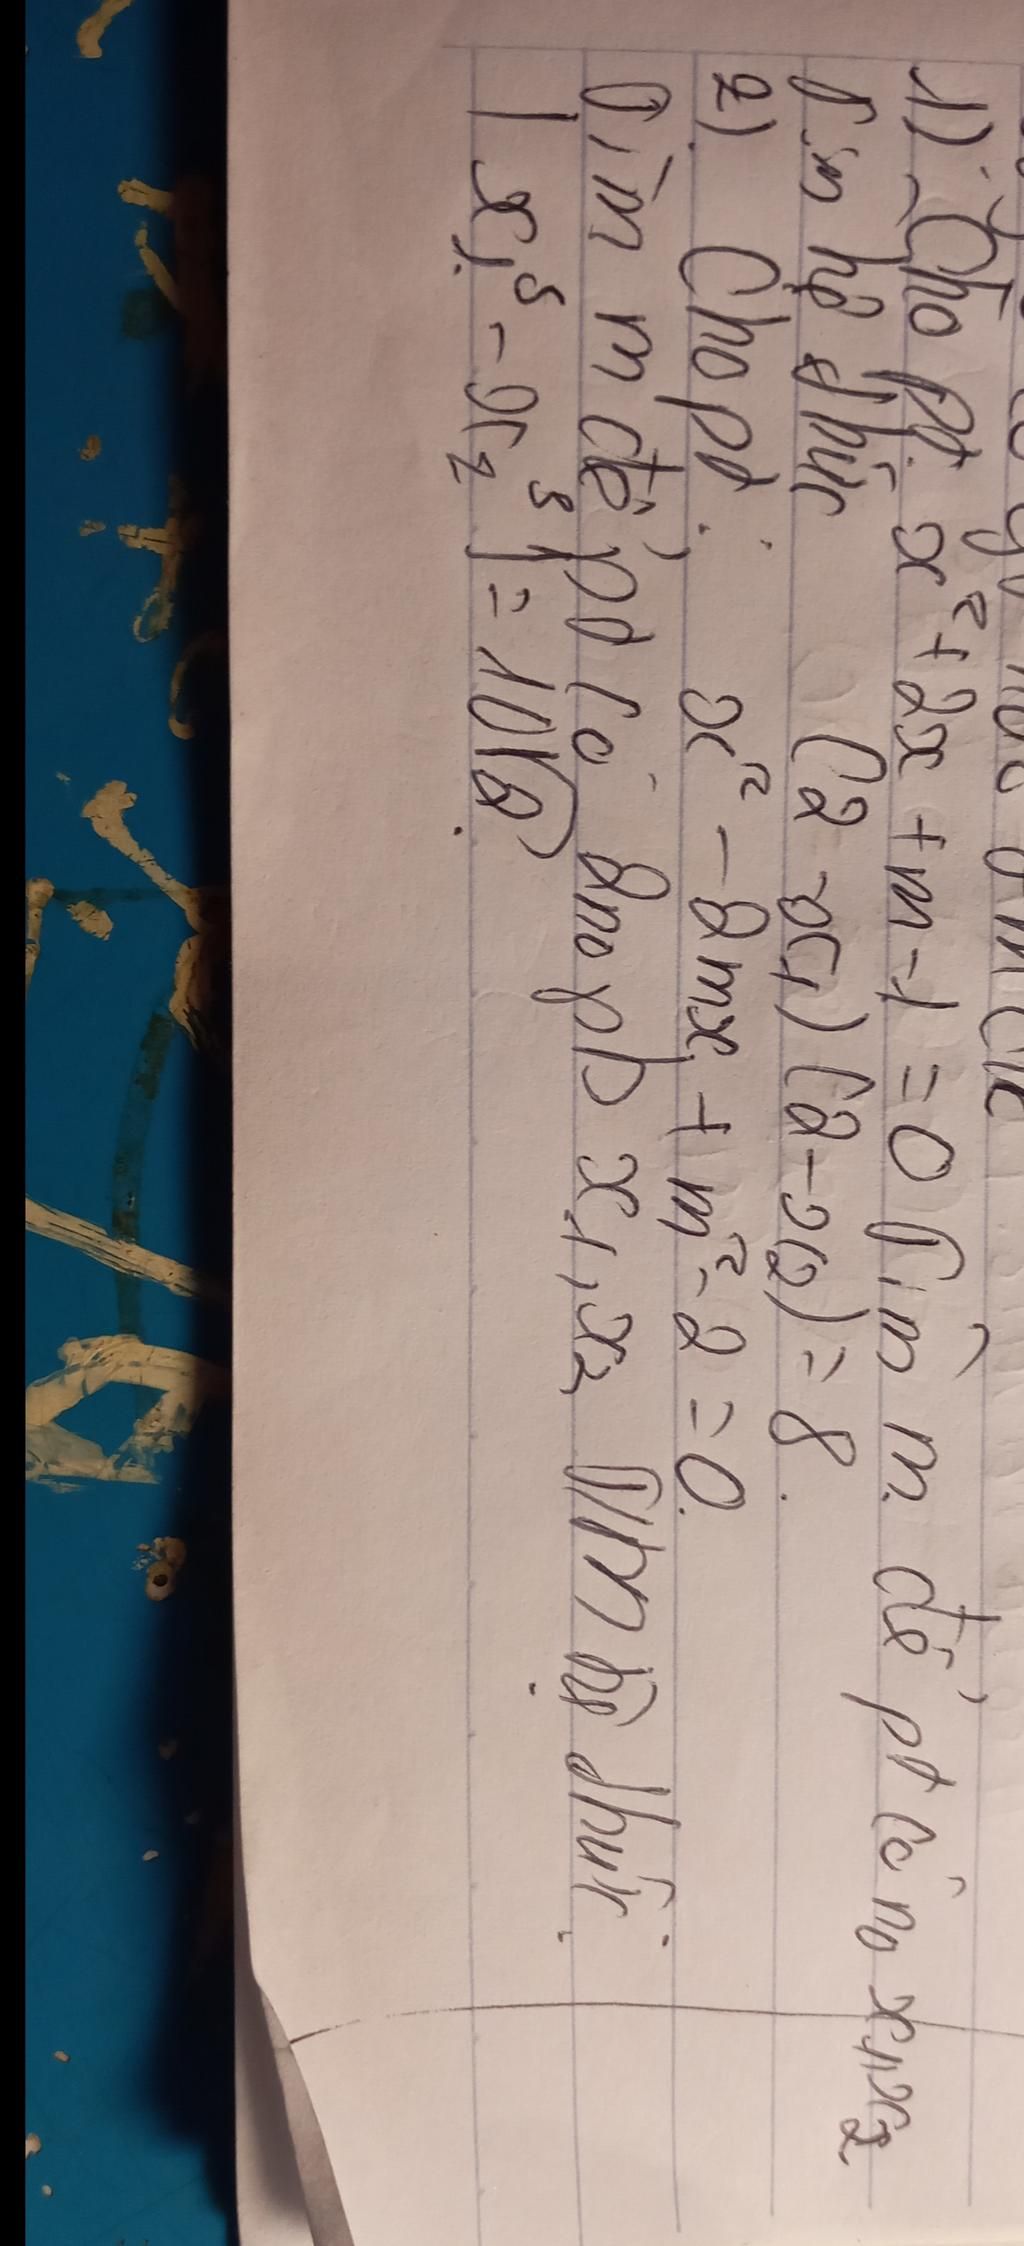 1) Cho pt x² + 2x + m - 1 = 0 Tìm m để pt có n₀ x₁, x₂
t.m hệ thức (2 - x₁) (2 - x₂) = 8.
2) Cho pt: x² - 2mx + m² - 2 = 0.
Tìm m để pt có 2n₀ pb x₁, x₂ t/m hệ thức.
| x₁³ - x₂³ | = 10√2